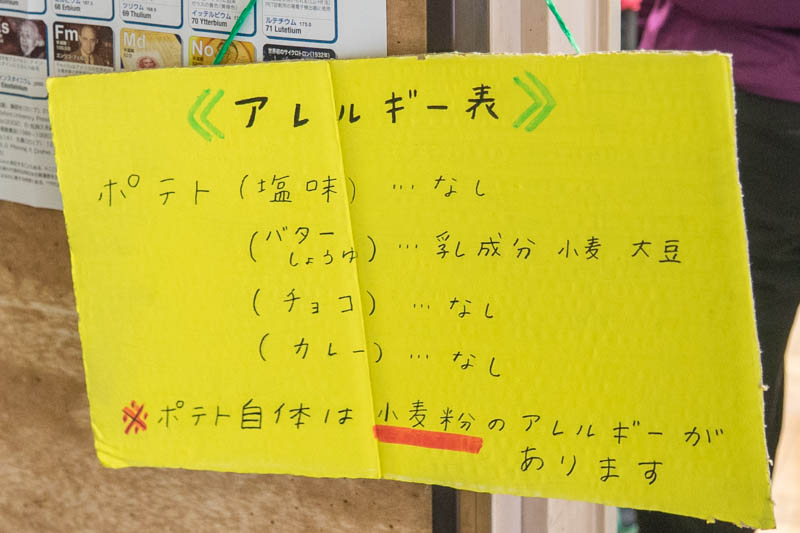 ツリウム
68 Erbium
69 Thulium
イッテルビウム
70 Ytterbium
ルテチウム
71 Lutetium
Es
Fm
Md
No
世界初のサイクロトロン(1932年)
Einsteinium
《アレルギー表》
ポテト(塩味)…なし
(バター
しょうゆ)…乳し成分 小麦 大豆
(チョコ)…なし
(カレー)…なし
※ポテト自体は小麦粉のアレルギーが
あります